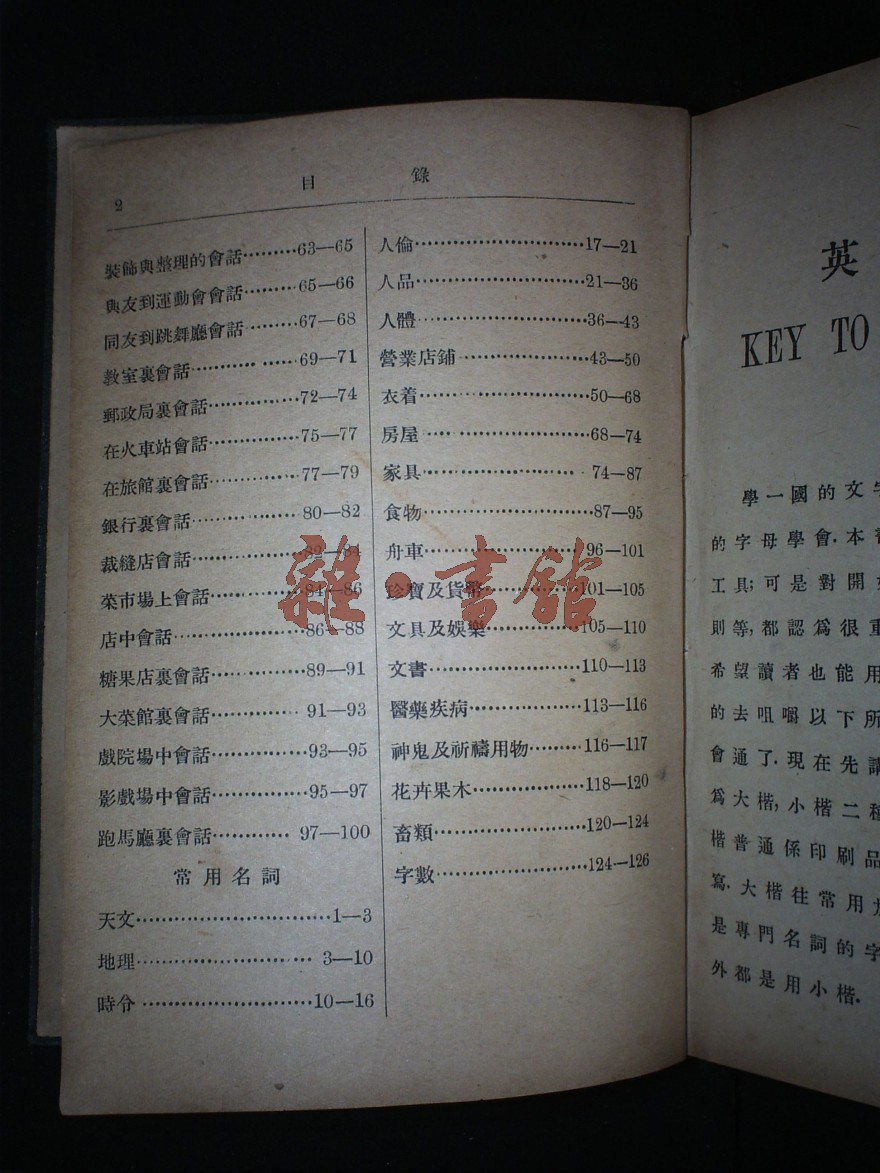 2
目 錄
裝飾與整理的會話………63—65
與友到運動會會話………65—66
同友到跳舞廳會話………67—68
教室裏會話……………69—71
郵政局裏會話……………72—74
在火車站會話……………75—77
在旅館裏會話……………77—79
銀行裏會話……………80—82
裁縫店會話……………82—84
菜市場上會話……………84—86
店中會話………………86—88
糖果店裏會話……………89—91
大菜館裏會話……………91—93
戲院場中會話……………93—95
影戲場中會話……………95—97
跑馬廳裏會話……………97—100
常用名詞
天文…………………………1—3
地理…………………………3—10
時令…………………………10—16
人倫…………………………17—21
人品…………………………21—36
人體…………………………36—43
營業店鋪…………………43—50
衣着…………………………50—68
房屋…………………………68—74
家具…………………………74—87
食物…………………………87—95
舟車…………………………96—101
珍寶及貨幣………………101—105
文具及娛樂………………105—110
文書…………………………110—113
醫藥疾病…………………113—116
神鬼及祈禱用物…………116—117
花卉果木…………………118—120
畜類…………………………120—124
字數…………………………124—126
雜·書館
英
KEY TO
學一國的文字
的字母學會.本書
工具;可是對開
則等,都認爲很重
希望讀者也能用
的去咀嚼以下所
會通了.現在先講
爲大楷,小楷二種
楷普通係印刷品
寫.大楷往常用
是專門名詞的字
外都是用小楷.